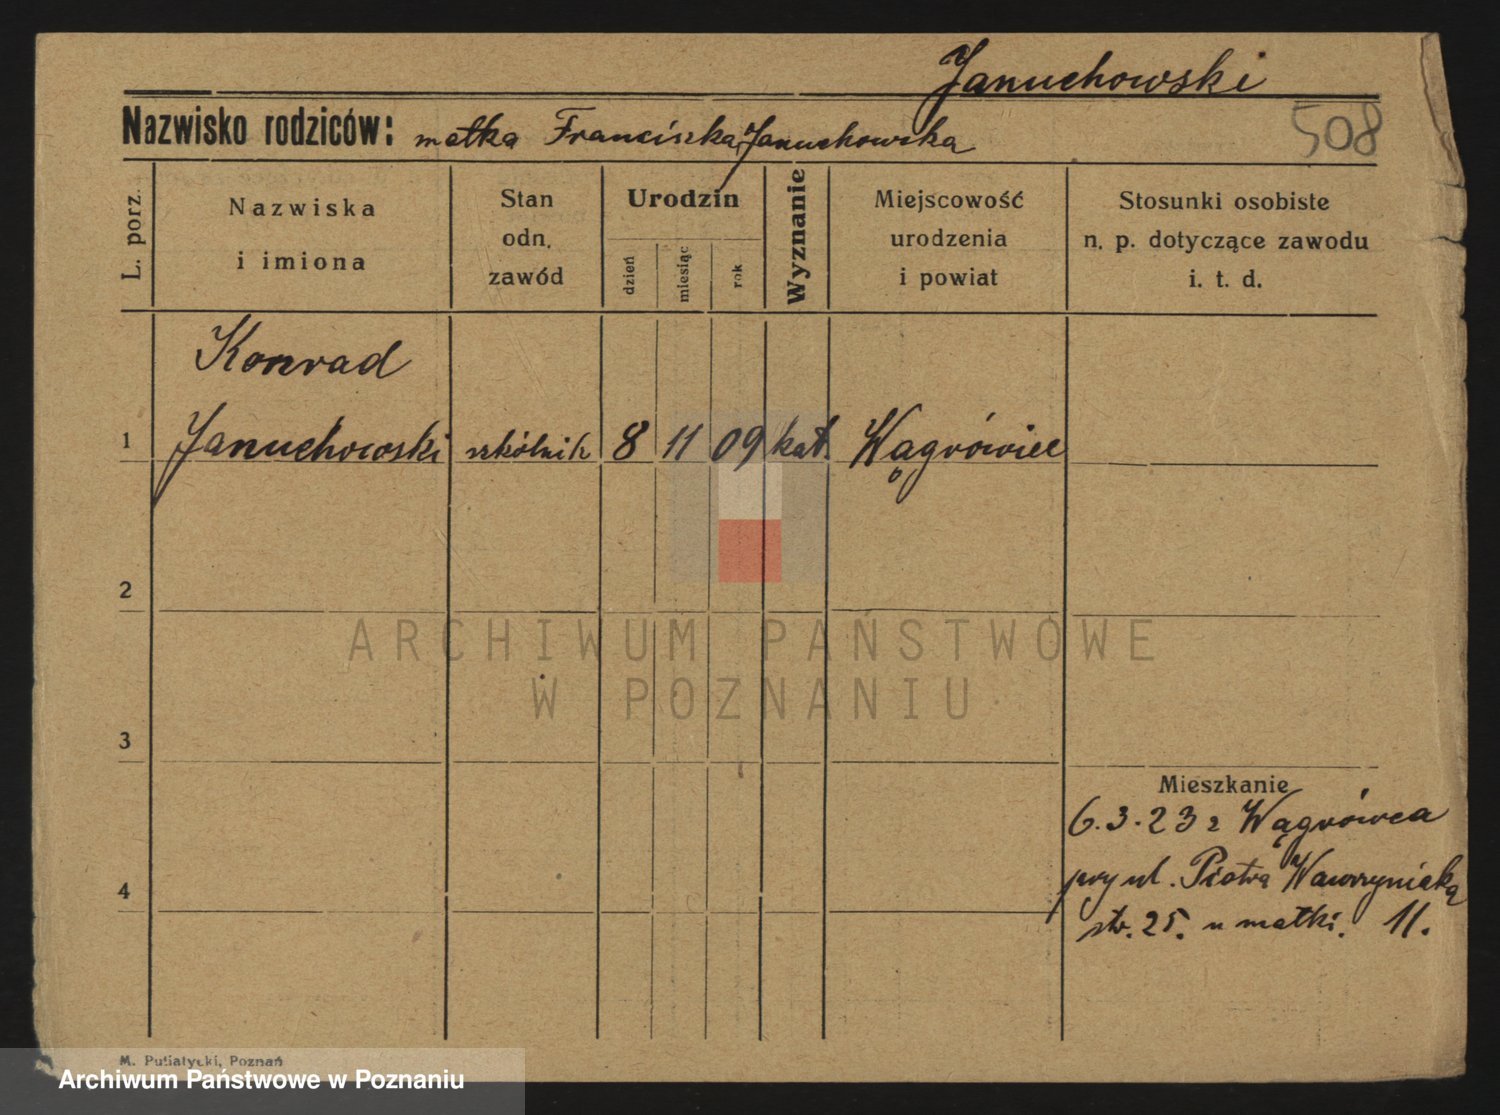 Januchowski
Nazwisko rodziców: matka Franciszka Januchowska
508
L. porz.
Nazwiska
i imiona
Stan
odn.
zawód
Urodzin
dzień
miesiąc
rok
Wyznanie
Miejscowość
urodzenia
i powiat
Stosunki osobiste
n. p. dotyczące zawodu
i. t. d.
Konrad
1 Januchowski szkólnik 8 11 09 kat. Wągrówiec
2
ARCHIWUM PAŃSTWOWE
W POZNANIU
3
Mieszkanie
6.3.23 z Wągrówca
przy ul. Piotra Wawrzyniaka
str. 25. u matki. 11.
4
M. Putiatycki, Poznań
Archiwum Państwowe w Poznaniu